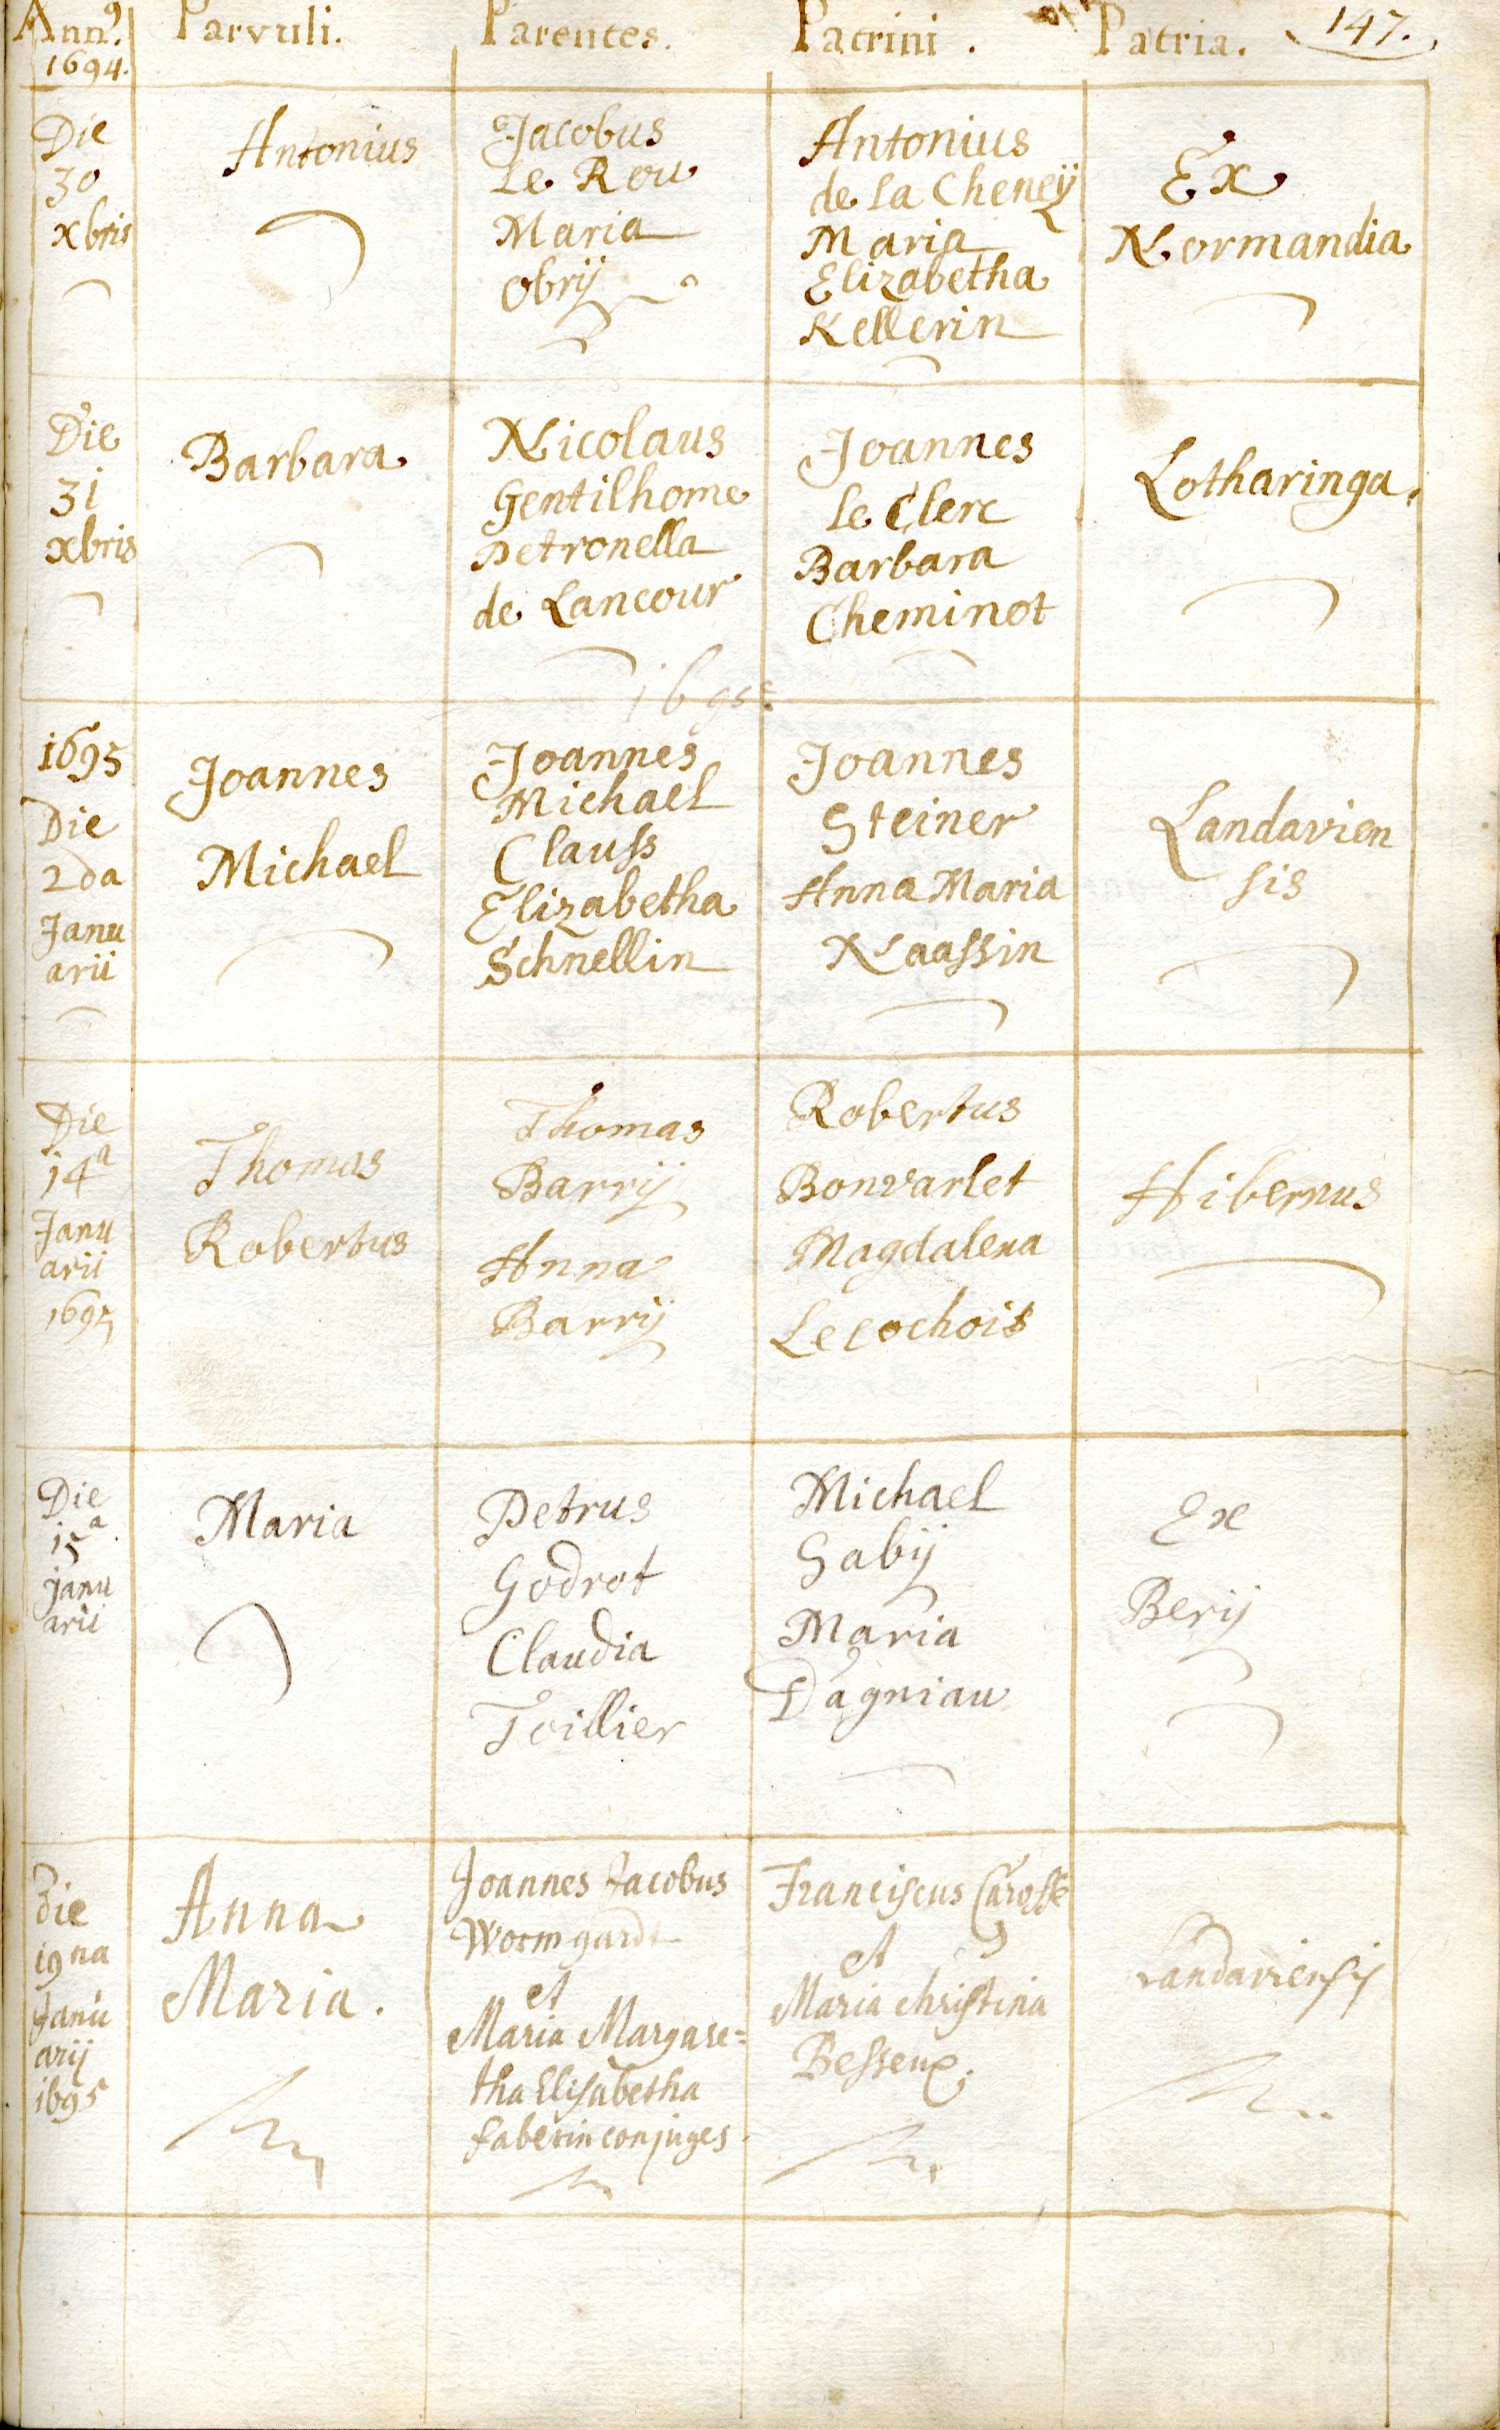 147.
Ann9. Parvuli. Parentes. Patrini. Patria.
1694.
Die
30
xbris
Antonius
Jacobus
Le Rou
Maria
Obrÿ
Antonius
de la Cheneÿ
Maria
Elizabetha
Kellerin
Ex
Normandia
Die
31
xbris
Barbara
Nicolaus
Gentilhome
Petronella
de Lancour
Joannes
le Clerc
Barbara
Cheminot
Lotharinga.
1695
1695
Die
2da
Janu
arii
Joannes
Michael
Joannes
Michael
Clauss
Elizabetha
Schnellin
Joannes
Steiner
Anna Maria
Naassin
Landavien
sis
Die
14a
Janu
arii
1695
Thomas
Robertus
Thomas
Barrÿ
Anna
Barrÿ
Robertus
Bonvarlet
Magdalena
Lecochois
Hibernus
Die
15a
Janu
arii
Maria
Petrus
Godrot
Claudia
Toillier
Michael
Gabÿ
Maria
Dagniau
Ex
Berÿ
Die
19na
Janu
arij
1695
Anna
Maria.
Joannes Jacobus
Wormgardt
et
Maria Margare=
tha Elisabetha
faberin conjuges
Franciscus Carosse
et
Maria Christina
Besseux.
Landaviensis